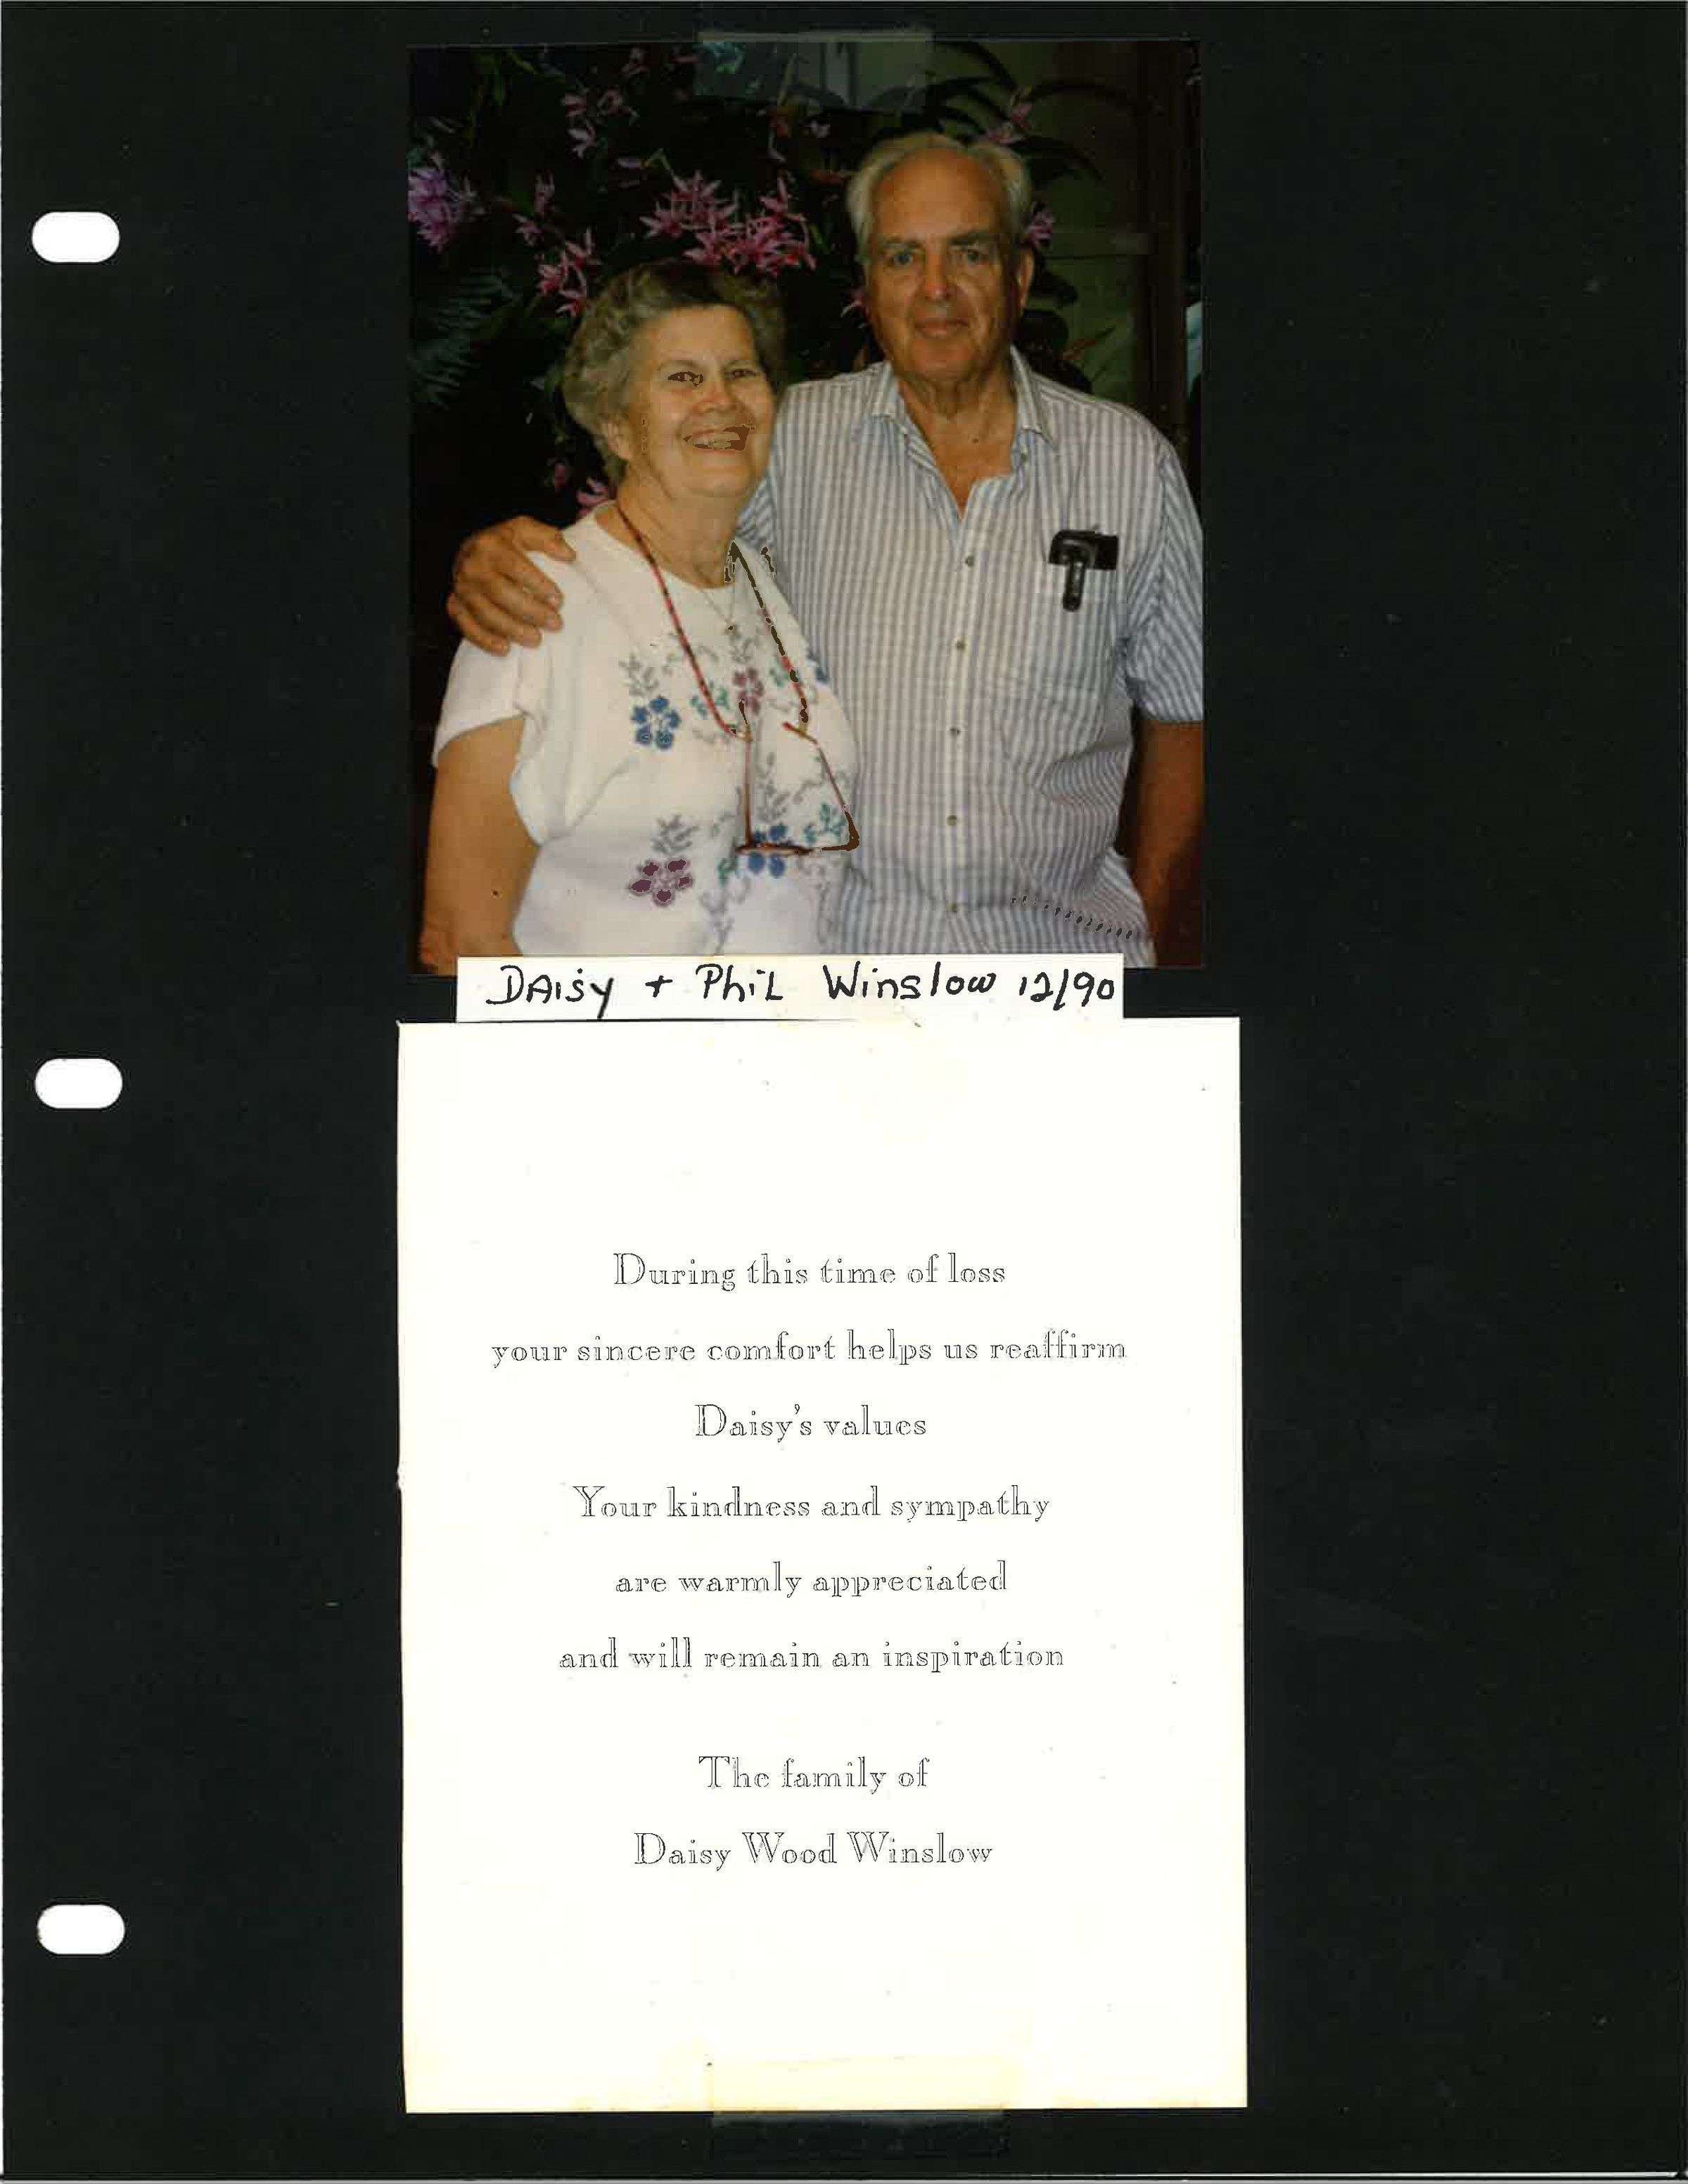 DAisy + PhiL Winslow 12/90
During this time of loss
your sincere comfort helps us reaffirm
Daisy's values
Your kindness and sympathy
are warmly appreciated
and will remain an inspiration
The family of
Daisy Wood Winslow